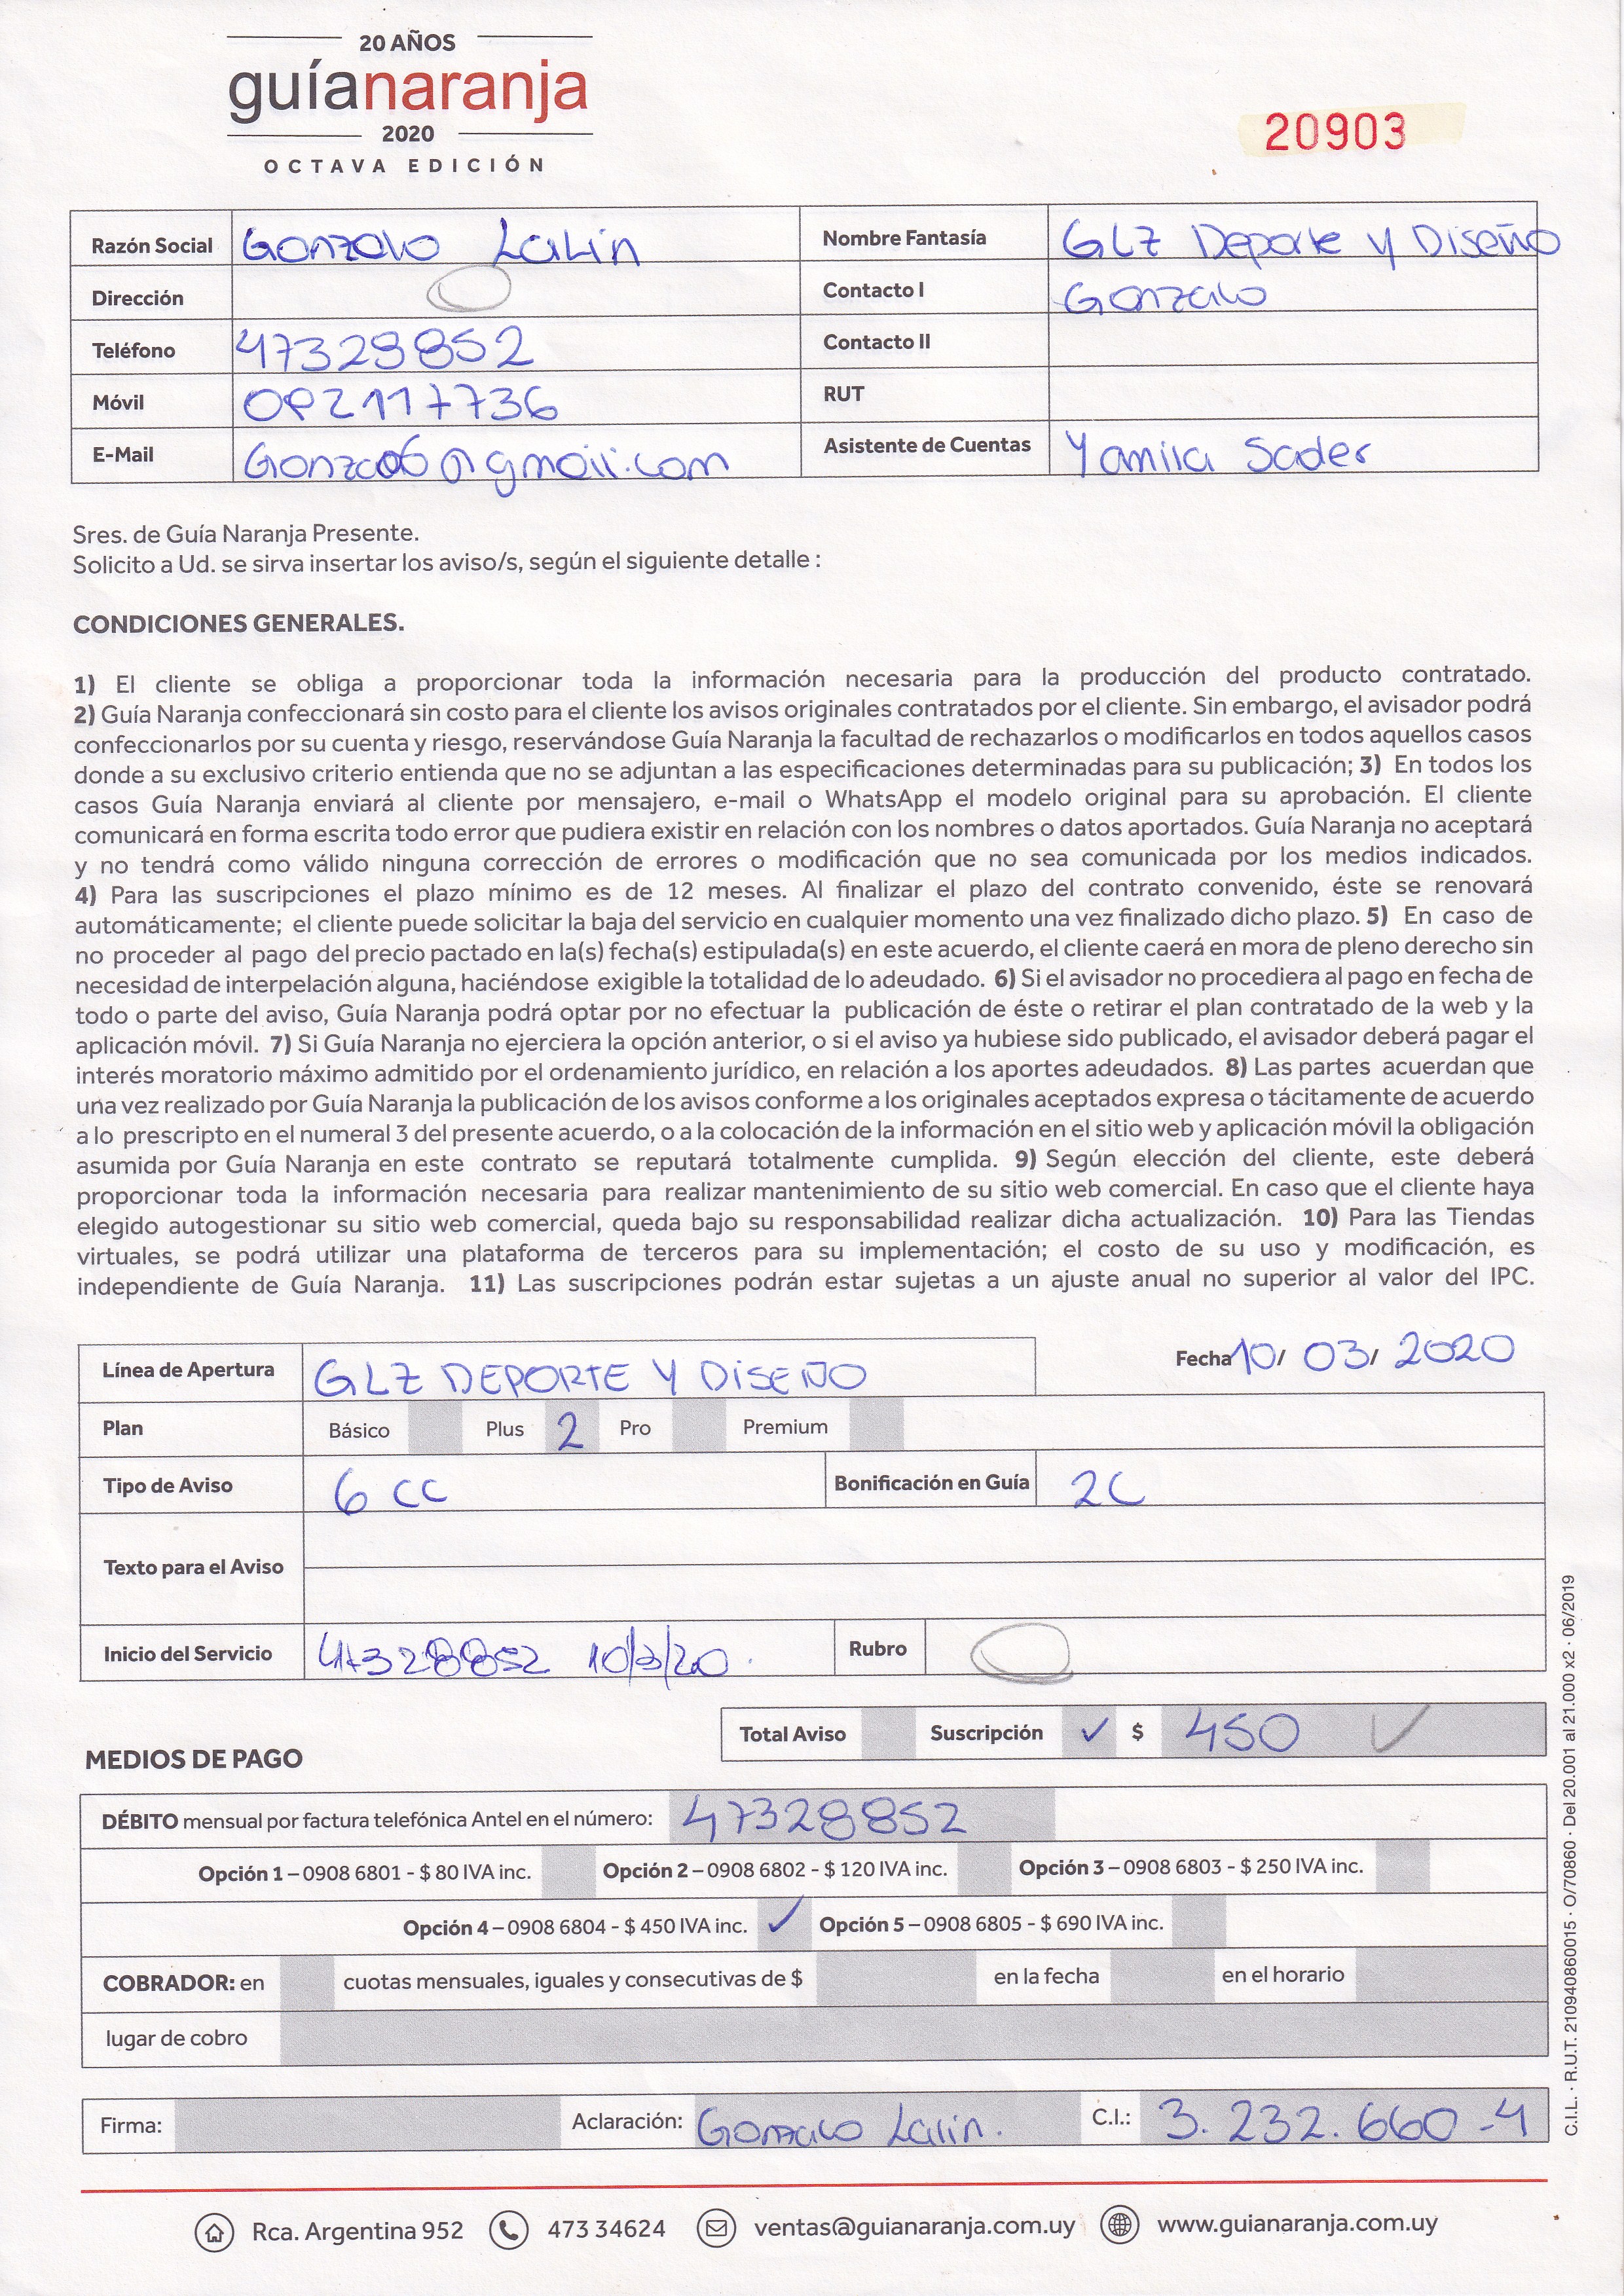 20 AÑOS
guíanaranja
2020
OCTAVA EDICIÓN
20903
Razón Social Gonzalo Lalin Nombre Fantasía GLZ Deporte y Diseño
Dirección Contacto I Gonzalo
Teléfono 47328852 Contacto II
Móvil 092117736 RUT
E-Mail @gmail.com Asistente de Cuentas Yamila Sader
Sres. de Guía Naranja Presente.
Solicito a Ud. se sirva insertar los aviso/s, según el siguiente detalle :
CONDICIONES GENERALES.
1) El cliente se obliga a proporcionar toda la información necesaria para la producción del producto contratado.
2) Guía Naranja confeccionará sin costo para el cliente los avisos originales contratados por el cliente. Sin embargo, el avisador podrá
confeccionarlos por su cuenta y riesgo, reservándose Guía Naranja la facultad de rechazarlos o modificarlos en todos aquellos casos
donde a su exclusivo criterio entienda que no se adjuntan a las especificaciones determinadas para su publicación; 3) En todos los
casos Guía Naranja enviará al cliente por mensajero, e-mail o WhatsApp el modelo original para su aprobación. El cliente
comunicará en forma escrita todo error que pudiera existir en relación con los nombres o datos aportados. Guía Naranja no aceptará
y no tendrá como válido ninguna corrección de errores o modificación que no sea comunicada por los medios indicados.
4) Para las suscripciones el plazo mínimo es de 12 meses. Al finalizar el plazo del contrato convenido, éste se renovará
automáticamente; el cliente puede solicitar la baja del servicio en cualquier momento una vez finalizado dicho plazo. 5) En caso de
no proceder al pago del precio pactado en la(s) fecha(s) estipulada(s) en este acuerdo, el cliente caerá en mora de pleno derecho sin
necesidad de interpelación alguna, haciéndose exigible la totalidad de lo adeudado. 6) Si el avisador no procediera al pago en fecha de
todo o parte del aviso, Guía Naranja podrá optar por no efectuar la publicación de éste o retirar el plan contratado de la web y la
aplicación móvil. 7) Si Guía Naranja no ejerciera la opción anterior, o si el aviso ya hubiese sido publicado, el avisador deberá pagar el
interés moratorio máximo admitido por el ordenamiento jurídico, en relación a los aportes adeudados. 8) Las partes acuerdan que
una vez realizado por Guía Naranja la publicación de los avisos conforme a los originales aceptados expresa o tácitamente de acuerdo
a lo prescripto en el numeral 3 del presente acuerdo, o a la colocación de la información en el sitio web y aplicación móvil la obligación
asumida por Guía Naranja en este contrato se reputará totalmente cumplida. 9) Según elección del cliente, este deberá
proporcionar toda la información necesaria para realizar mantenimiento de su sitio web comercial. En caso que el cliente haya
elegido autogestionar su sitio web comercial, queda bajo su responsabilidad realizar dicha actualización. 10) Para las Tiendas
virtuales, se podrá utilizar una plataforma de terceros para su implementación; el costo de su uso y modificación, es
independiente de Guía Naranja. 11) Las suscripciones podrán estar sujetas a un ajuste anual no superior al valor del IPC.
Línea de Apertura GLZ DEPORTE Y DISEÑO Fecha 10/ 03/ 2020
Plan Básico Plus 2 Pro Premium
Tipo de Aviso 6 CC Bonificación en Guía 2C
Texto para el Aviso
Inicio del Servicio 47328852 10/3/20. Rubro
Total Aviso Suscripción ✓ $ 450 ✓
MEDIOS DE PAGO
DÉBITO mensual por factura telefónica Antel en el número: 47328852
Opción 1 – 0908 6801 - $ 80 IVA inc. Opción 2 – 0908 6802 - $ 120 IVA inc. Opción 3 – 0908 6803 - $ 250 IVA inc.
Opción 4 – 0908 6804 - $ 450 IVA inc. ✓ Opción 5 – 0908 6805 - $ 690 IVA inc.
COBRADOR: en cuotas mensuales, iguales y consecutivas de $ en la fecha en el horario
lugar de cobro
Firma: Aclaración: Gonzalo Lalin. C.I.: 3.232.660-4
Rca. Argentina 952 473 34624 ventas@guianaranja.com.uy www.guianaranja.com.uy
C.I.L. · R.U.T. 210940860015 · O/70860 · Del 20.001 al 21.000 x2 · 06/2019